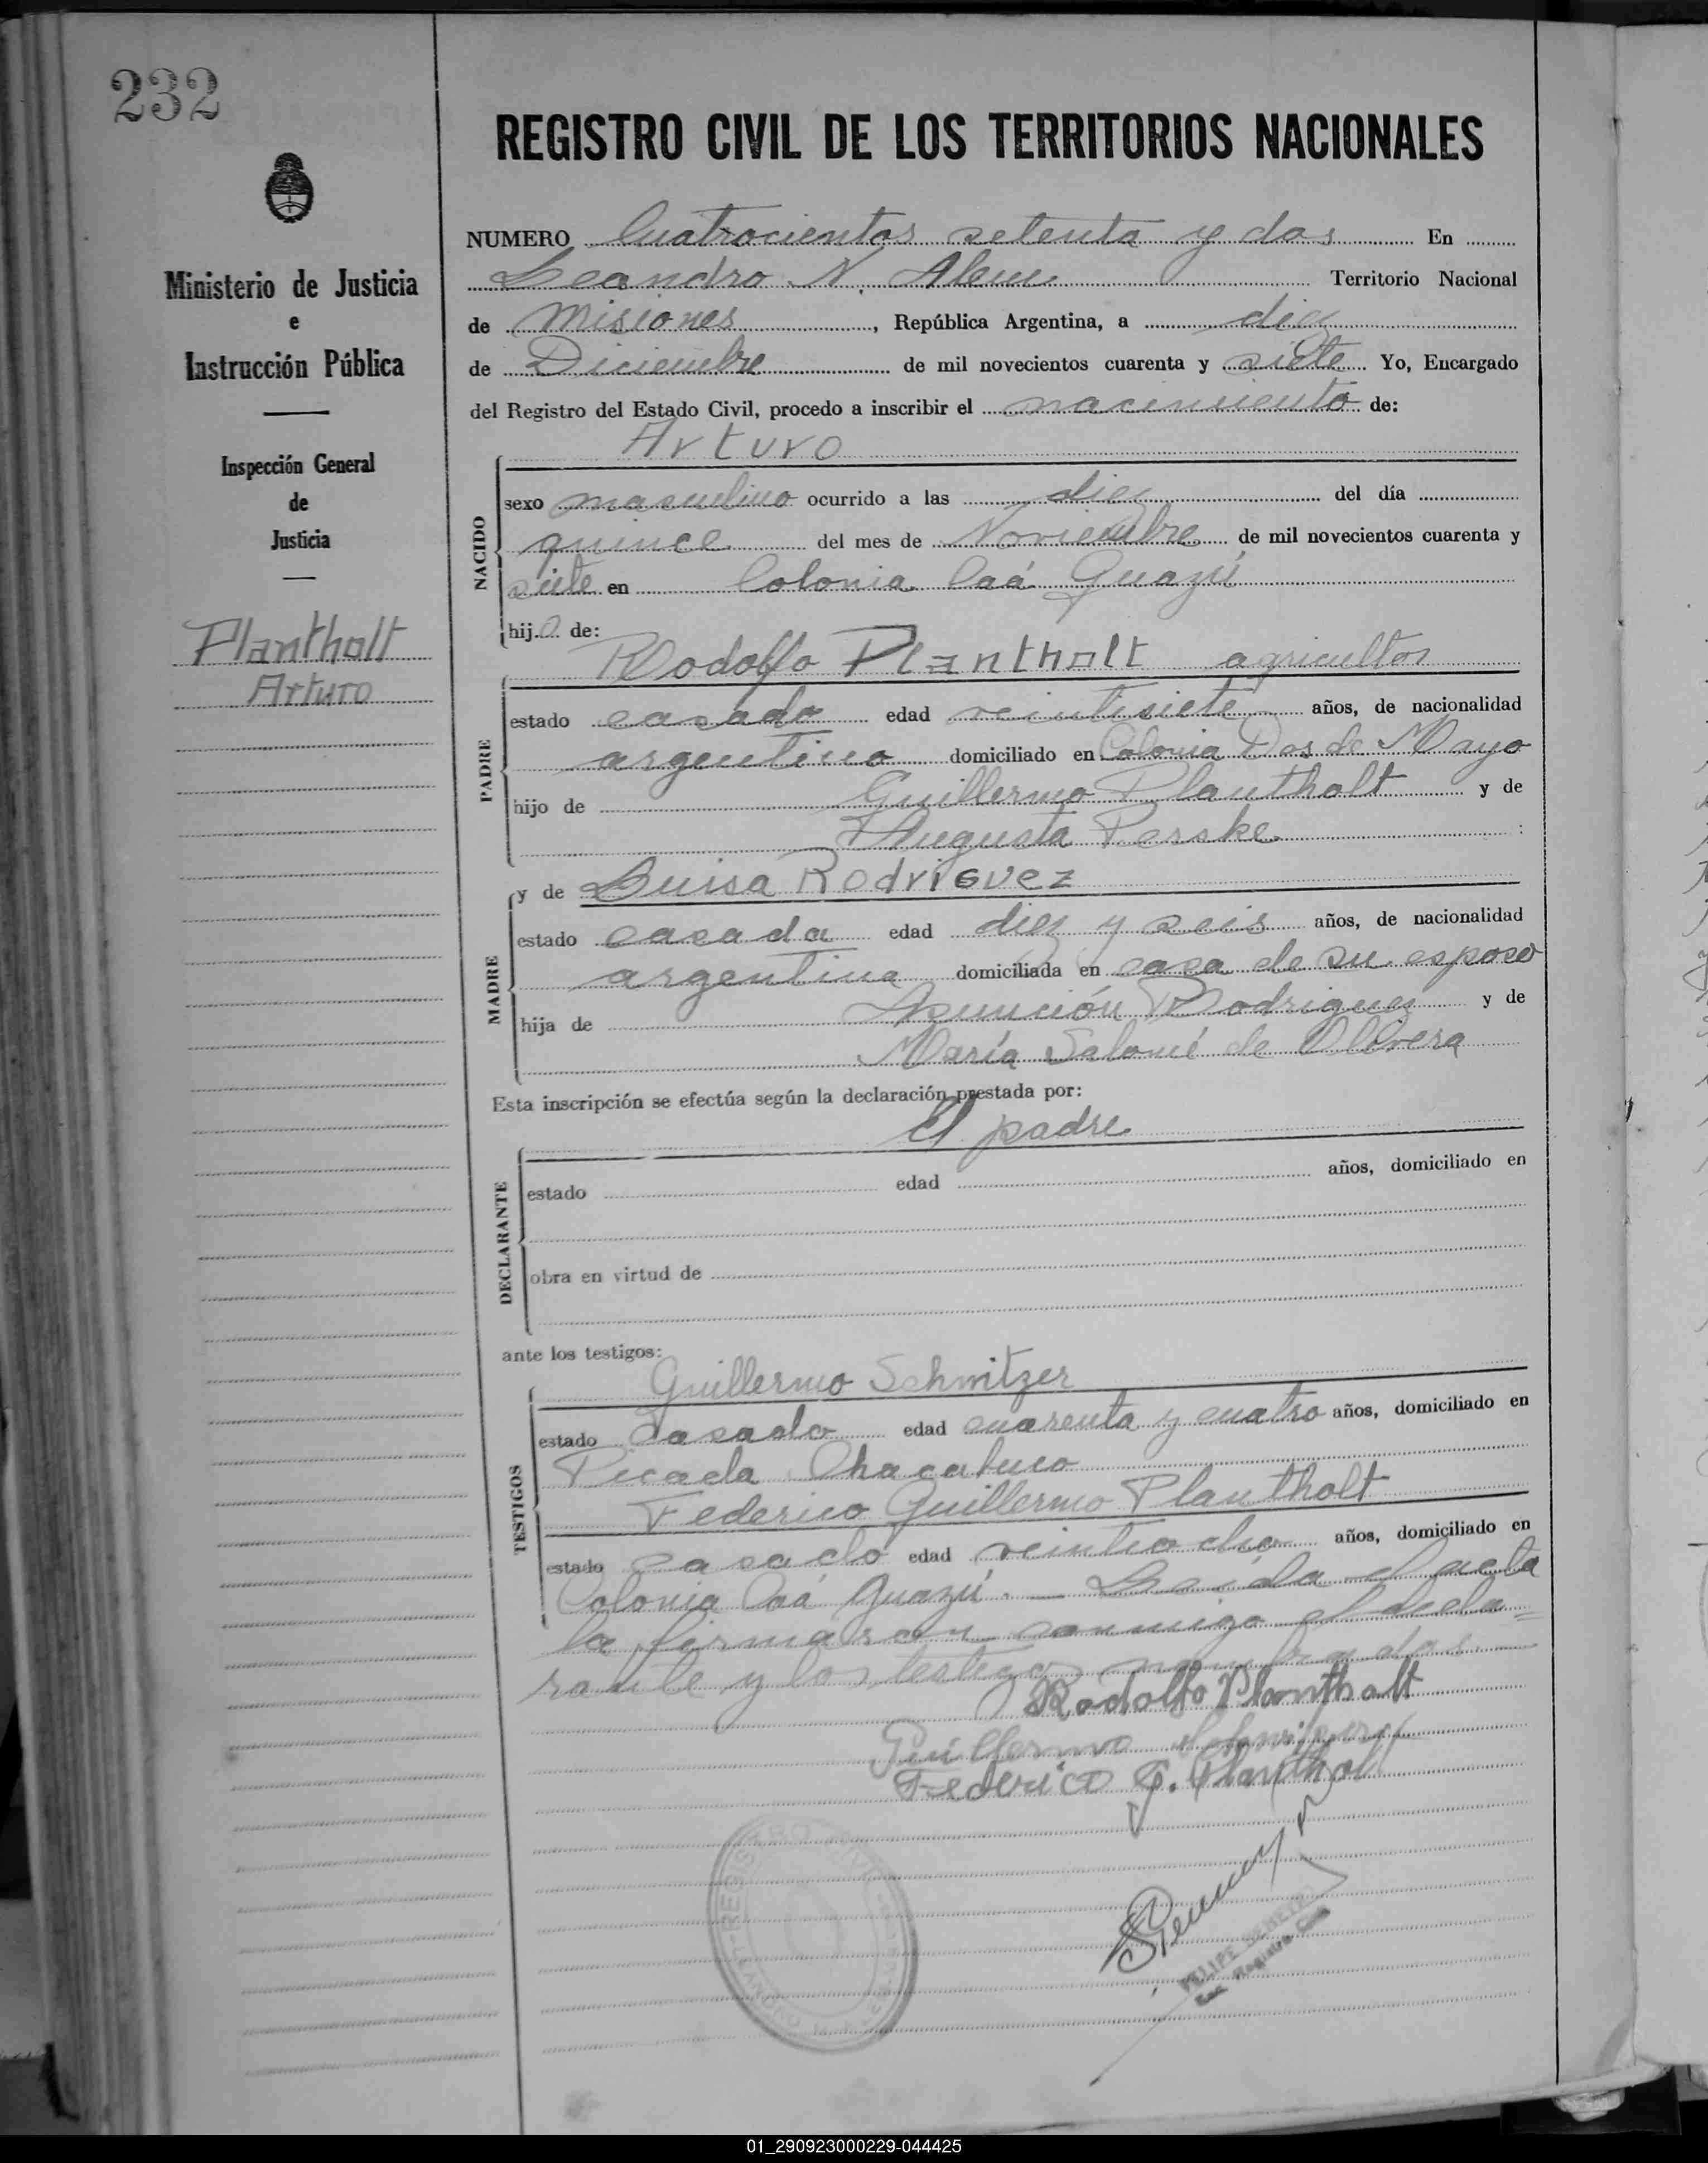 232
REGISTRO CIVIL DE LOS TERRITORIOS NACIONALES
Ministerio de Justicia
e
Instrucción Pública
Inspección General
de
Justicia
Plantholt
Arturo
NUMERO Cuatrocientos setenta y dos En
Leandro N. Alem Territorio Nacional
de Misiones, República Argentina, a diez
de Diciembre de mil novecientos cuarenta y siete Yo, Encargado
del Registro del Estado Civil, procedo a inscribir el nacimiento de:
Arturo
NACIDO
sexo masculino ocurrido a las diez del día
quince del mes de Noviembre de mil novecientos cuarenta y
siete en Colonia Caá Guazú
hijo de:
Rodolfo Plantholt agricultor
PADRE
estado casado edad veintisiete años, de nacionalidad
argentino domiciliado en Colonia Dos de Mayo
hijo de Guillermo Plantholt y de
Augusta Perske
y de Luisa Rodriguez
MADRE
estado casada edad diez y seis años, de nacionalidad
argentina domiciliada en casa de su esposo
hija de Asunción Rodriguez y de
María Salomé de Olivera
Esta inscripción se efectúa según la declaración prestada por:
El padre
DECLARANTE
estado edad años, domiciliado en
obra en virtud de
ante los testigos:
Guillermo Schmitzer
TESTIGOS
estado casado edad cuarenta y cuatro años, domiciliado en
Picada Chacabuco
Federico Guillermo Plantholt
estado casado edad veintiocho años, domiciliado en
Colonia Caá Guazú. — Leida el acta
la firmaron conmigo el decla=
rante y los testigos nombrados.
Rodolfo Plantholt
Guillermo
Federico G. Plantholt
FELIPE
Enc. Registro Civil
01_290923000229-044425